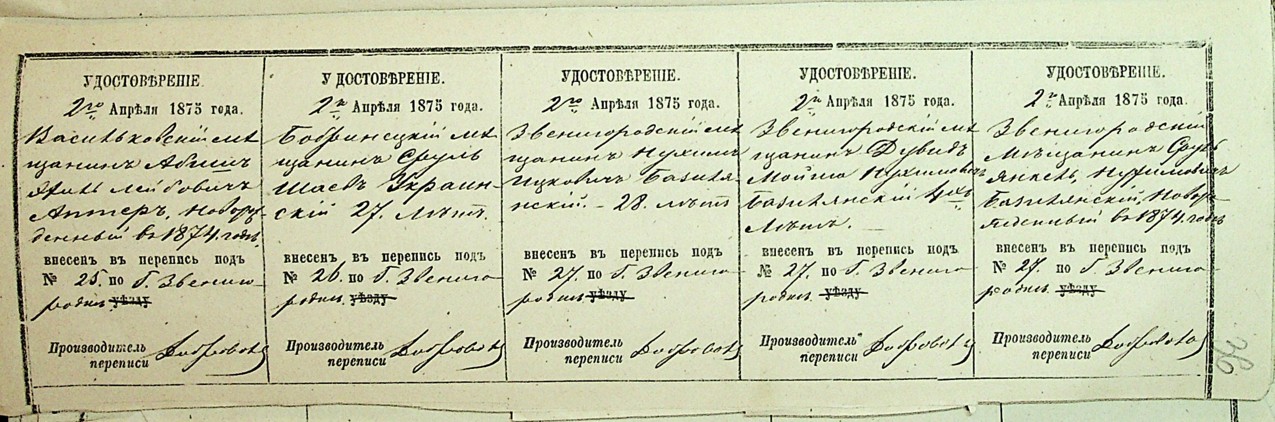 УДОСТОВѢРЕНІЕ.
2го Апрѣля 1875 года.
Васильковскій мѣ
щанинъ Абрамъ
Лейбовичъ
Аптеръ, Новорож
денный въ 1874 году
внесенъ въ перепись подъ
№ 25. по Г. Звениго
родкѣ уѣзду
Производитель
переписи
УДОСТОВѢРЕНІЕ.
2го Апрѣля 1875 года.
Бобринецкій мѣ
щанинъ Сруль
Шаевъ Украин-
скій 27. лѣтъ.
внесенъ въ перепись подъ
№ 26. по Г. Звениго
родкѣ уѣзду
Производитель
переписи
УДОСТОВѢРЕНІЕ.
2го Апрѣля 1875 года.
Звенигородскій мѣ
щанинъ Нухимъ
Ицковичъ Базиля
нскій. - 28. лѣтъ
внесенъ въ перепись подъ
№ 27. по Г. Звениго
родкѣ уѣзду
Производитель
переписи
УДОСТОВѢРЕНІЕ.
2го Апрѣля 1875 года.
Звенигородскій мѣ
щанинъ Дувидъ
Мошко Нухимовичъ
Базилянскій 4хъ
лѣтъ. —
внесенъ въ перепись подъ
№ 27. по Г. Звениго
родкѣ уѣзду
Производитель
переписи
УДОСТОВѢРЕНІЕ.
2го Апрѣля 1875 года.
Звенигородскій
Мѣщанинъ Сруль
Янкель Нухимовичъ
Базилянскій, Новорож
денный въ 1874 году
внесенъ въ перепись подъ
№ 27. по Г. Звениго
родкѣ уѣзду
Производитель
переписи